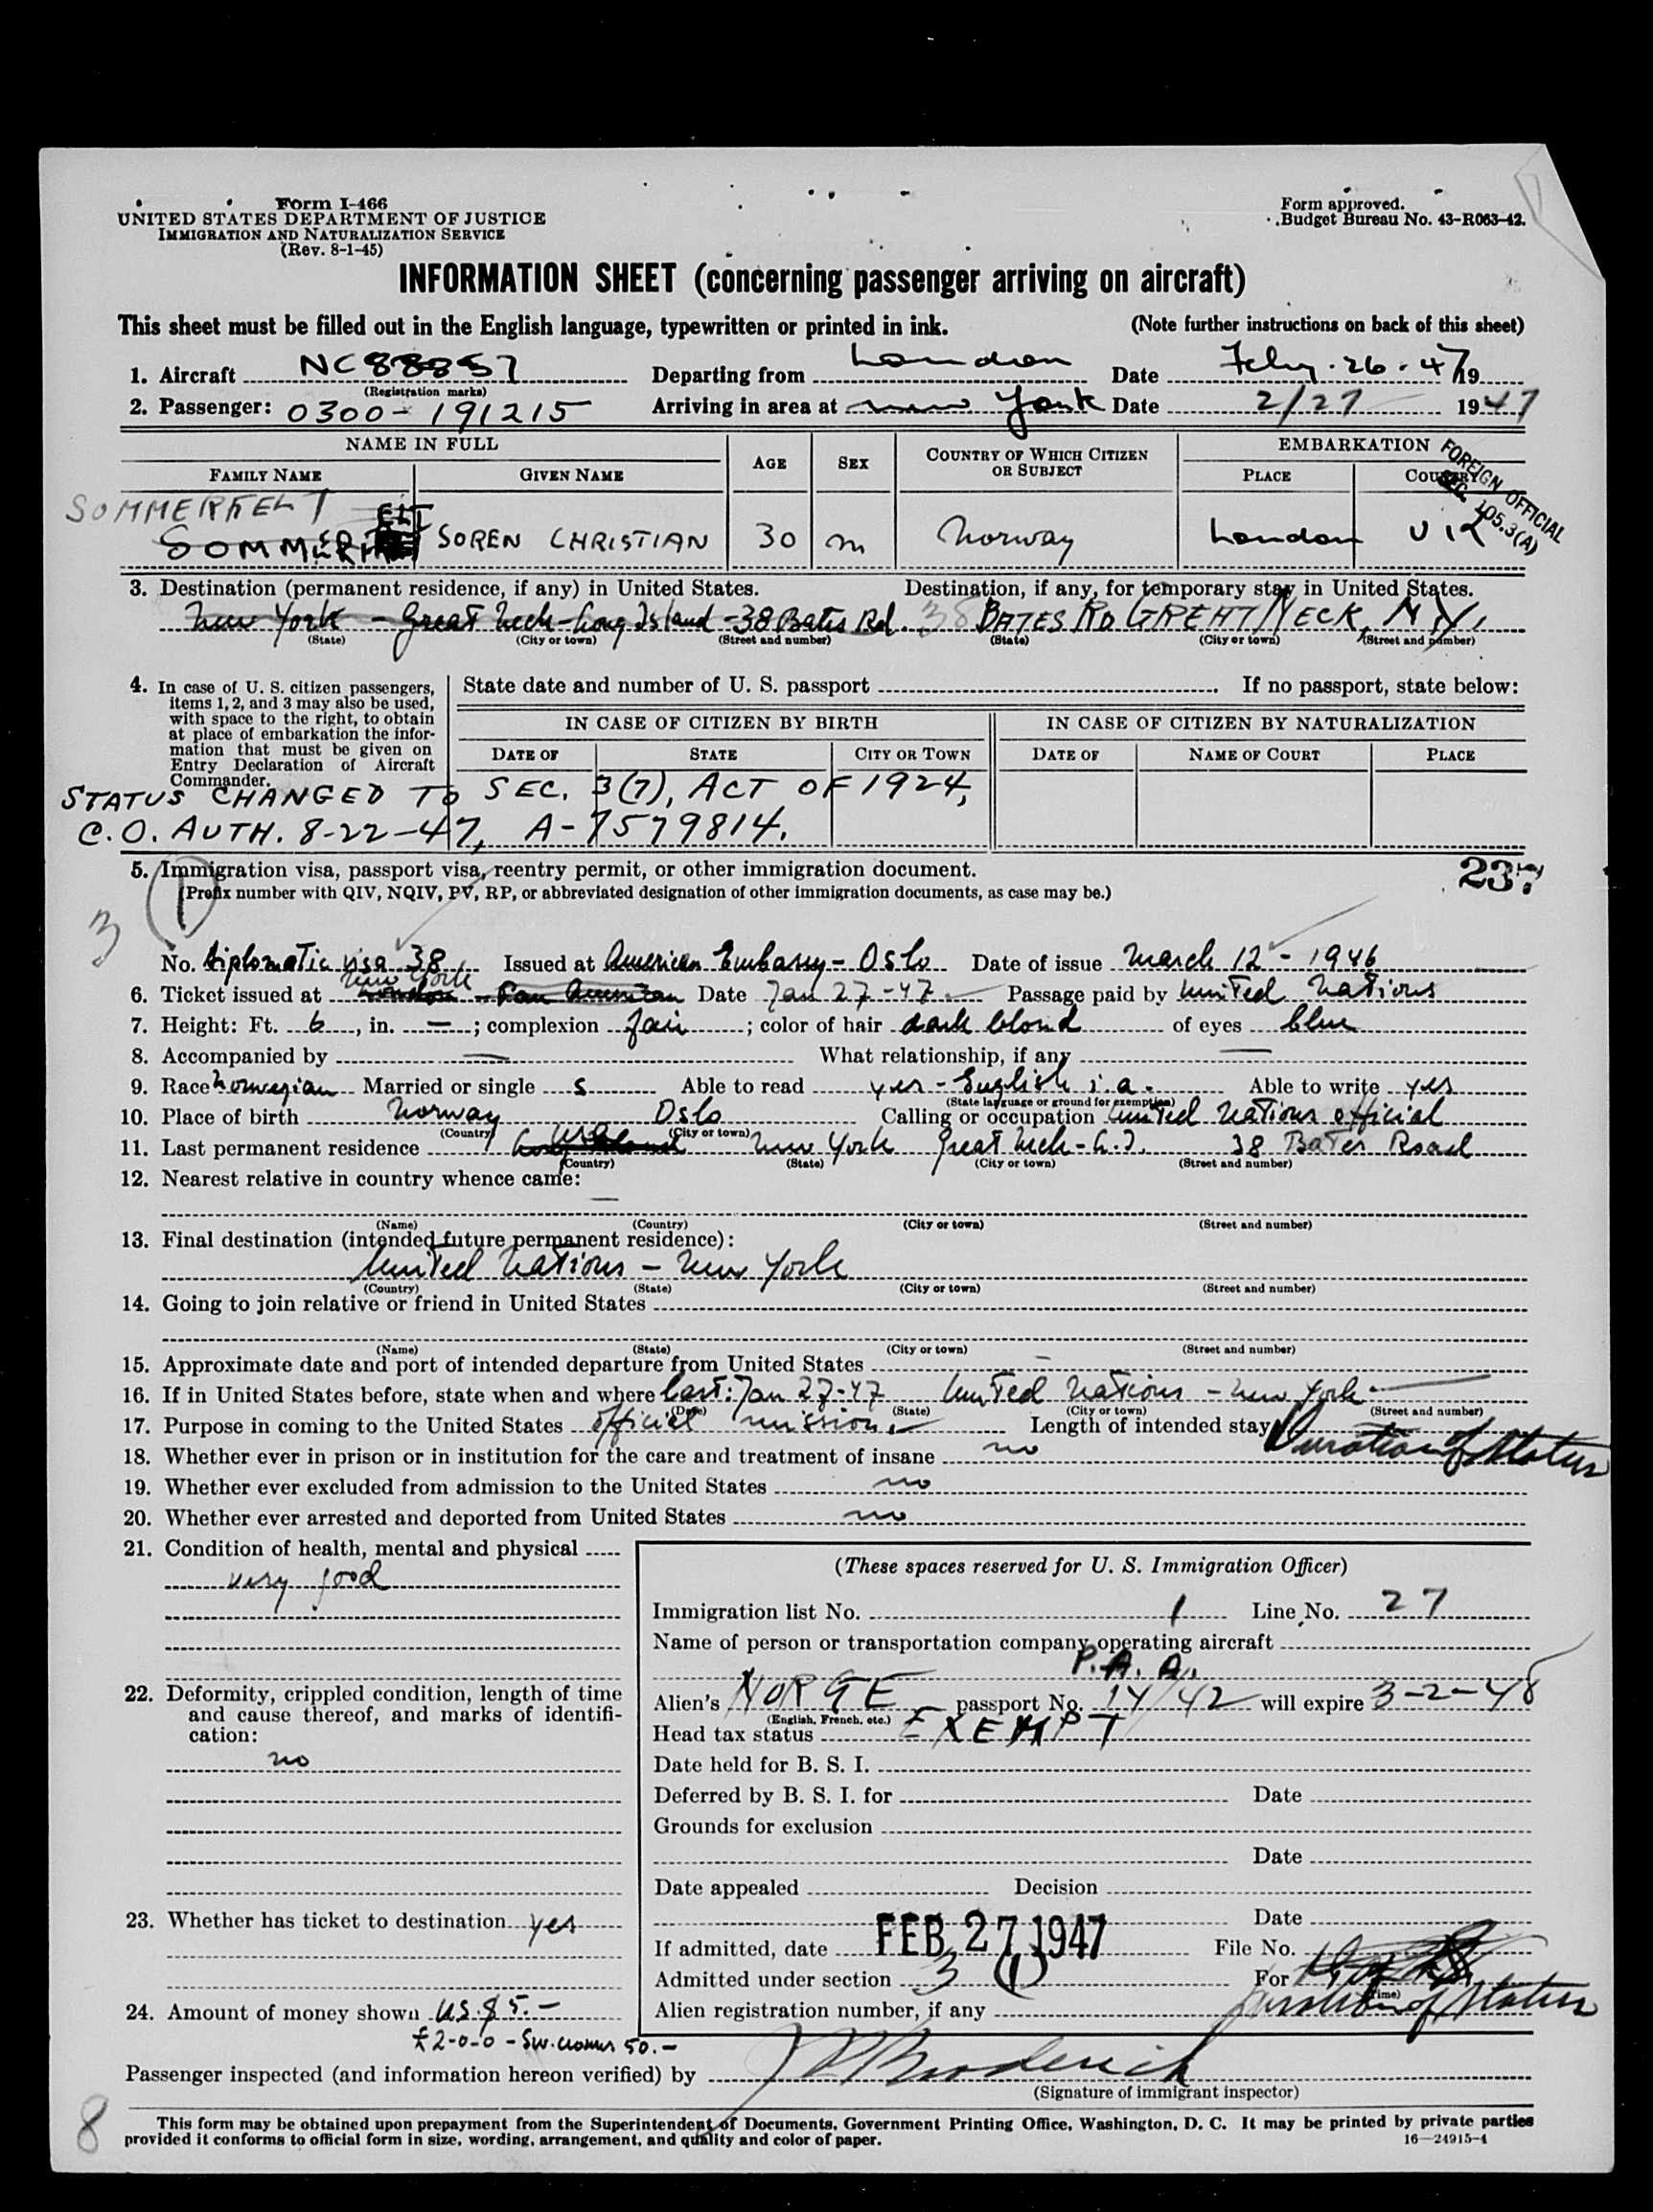 Form I-466
UNITED STATES DEPARTMENT OF JUSTICE
IMMIGRATION AND NATURALIZATION SERVICE
(Rev. 8-1-45)
Form approved.
Budget Bureau No. 43-R063-42.
INFORMATION SHEET (concerning passenger arriving on aircraft)
This sheet must be filled out in the English language, typewritten or printed in ink. (Note further instructions on back of this sheet)
1. Aircraft NC88857 Departing from London Date Feby. 26. 47 19
(Registration marks)
2. Passenger: 0300-191215 Arriving in area at New York Date 2/27 1947
NAME IN FULL AGE SEX COUNTRY OF WHICH CITIZEN OR SUBJECT EMBARKATION
FAMILY NAME GIVEN NAME PLACE COUNTRY
FOREIGN OFFICIAL
SEC. 105.3(A)
SOMMERFELT
ELT
SOREN CHRISTIAN 30 m Norway London UK
3. Destination (permanent residence, if any) in United States. Destination, if any, for temporary stay in United States.
New York - Great Neck - Long Island - 38 Bates Rd. 38 BATES RD GREAT NECK, N.Y.
(State) (City or town) (Street and number) (State) (City or town) (Street and number)
4. In case of U. S. citizen passengers, items 1, 2, and 3 may also be used, with space to the right, to obtain at place of embarkation the information that must be given on Entry Declaration of Aircraft Commander.
State date and number of U. S. passport If no passport, state below:
IN CASE OF CITIZEN BY BIRTH IN CASE OF CITIZEN BY NATURALIZATION
DATE OF STATE CITY OR TOWN DATE OF NAME OF COURT PLACE
STATUS CHANGED TO SEC. 3(7), ACT OF 1924,
C.O. AUTH. 8-22-47, A-7579814.
5. Immigration visa, passport visa, reentry permit, or other immigration document. 237
(Prefix number with QIV, NQIV, PV, RP, or abbreviated designation of other immigration documents, as case may be.)
3 (1)
No. Diplomatic visa 38 Issued at American Embassy - Oslo Date of issue March 12 - 1946
New York
6. Ticket issued at London - Pan American Date Jan 27-47 Passage paid by United Nations
7. Height: Ft. 6, in. —; complexion fair; color of hair dark blond of eyes blue
8. Accompanied by — What relationship, if any —
9. Race Norwegian Married or single S Able to read yes - English i.a. Able to write yes
(State language or ground for exemption)
10. Place of birth Norway Oslo Calling or occupation United Nations official
(Country) (City or town)
11. Last permanent residence USA New York Great Neck - L.I. 38 Bates Road
(Country) (State) (City or town) (Street and number)
12. Nearest relative in country whence came:
—
(Name) (Country) (City or town) (Street and number)
13. Final destination (intended future permanent residence):
United Nations - New York
(Country) (State) (City or town) (Street and number)
14. Going to join relative or friend in United States
(Name) (State) (City or town) (Street and number)
15. Approximate date and port of intended departure from United States —
16. If in United States before, state when and where Last: Jan 27-47 United Nations - New York
(Date) (State) (City or town) (Street and number)
17. Purpose in coming to the United States official mission. Length of intended stay Duration of Status
18. Whether ever in prison or in institution for the care and treatment of insane no
19. Whether ever excluded from admission to the United States no
20. Whether ever arrested and deported from United States no
21. Condition of health, mental and physical
very good
22. Deformity, crippled condition, length of time and cause thereof, and marks of identification:
no
23. Whether has ticket to destination yes
24. Amount of money shown US.$5.-
£2-0-0 - Sw. crowns 50.-
(These spaces reserved for U. S. Immigration Officer)
Immigration list No. 1 Line No. 27
Name of person or transportation company operating aircraft
P.A.A.
Alien's NORGE passport No. 14/42 will expire 3-2-48
(English, French, etc.)
Head tax status EXEMPT
Date held for B. S. I.
Deferred by B. S. I. for Date
Grounds for exclusion
Date
Date appealed Decision
Date
If admitted, date FEB 27 1947 File No.
Admitted under section 3 (1) For
(Time)
Alien registration number, if any Duration of Status
Passenger inspected (and information hereon verified) by Broderick
(Signature of immigrant inspector)
8
This form may be obtained upon prepayment from the Superintendent of Documents, Government Printing Office, Washington, D. C. It may be printed by private parties
provided it conforms to official form in size, wording, arrangement, and quality and color of paper. 16—24915-4